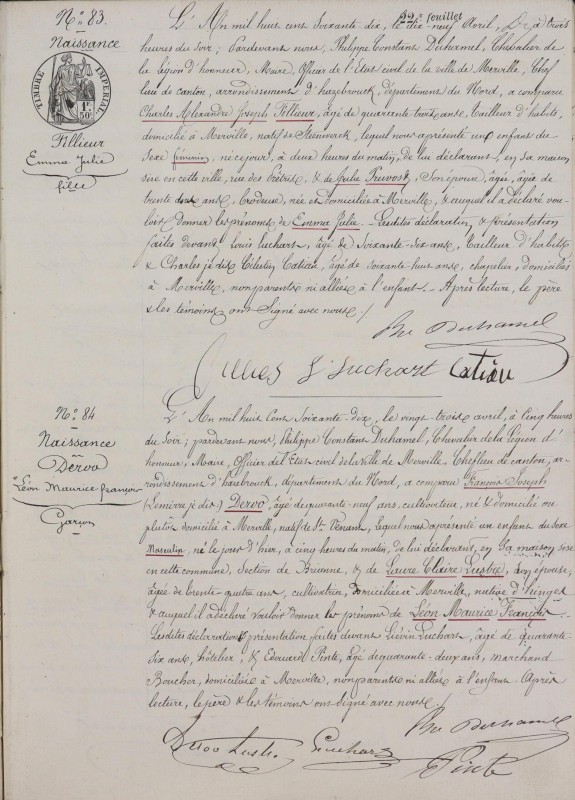 22e feuillet
No 83.
Naissance
TIMBRE IMPÉRIAL
1F 50c
Fillieux
Emma Julie
fille
L'An mil huit cent Soixante-dix, le dix-neuf Avril, à trois
heures du Soir; Pardevant nous, Philippe Constant Duhamel, Chevalier de
la Légion d'honneur, Maire, Officier de l'Etat civil de la ville de Merville, Chef
lieu de canton, arrondissement d'hazebrouck, département du Nord, a comparu
Charles Alexandre Joseph Fillieux, âgé de quarante-trois ans, tailleur d'habits,
domicilié à Merville, natif de Steenwerck, lequel nous a présenté un enfant du
Sexe féminin, né ce jour, à deux heures du matin, de lui déclarant, en sa maison
sise en cette ville, rue des Prêtres, & de Julie Pruvost, Son épouse, âgée de
trente deux ans, brodeuse, née et domiciliée à Merville, & auquel il a déclaré vou-
loir donner les prénoms de Emma Julie. - Lesdites déclaration & présentation
faites devant Louis Luchart, âgé de Soixante-Six ans, tailleur d'habits
& Charles je dis Célestin Catiau, âgé de soixante-huit ans, chapelier, domiciliés
à Merville, non parents ni alliés à l'enfant. - Après lecture, le père
& les témoins ont Signé avec nous./.
Phe Duhamel
Luchart Catiau
No 84
Naissance
Dervo
Léon Maurice françois
Garçon
L'An mil huit Cent Soixante-dix, le vingt-trois avril, à Cinq heures
du Soir; pardevant nous, Philippe Constant Duhamel, Chevalier de la Légion d'
honneur, Maire, Officier de l'Etat civil de la Ville de Merville, Chef lieu de canton, ar-
rondissement d'hazebrouck, département du Nord, a comparu François Joseph
(Lemière je dis) Dervo, âgé de quarante-neuf ans, cultivateur, né & domicilié ou
plutôt domicilié à Merville, natif de St Venant, lequel nous a présenté un enfant du Sexe
Masculin, né le jour d'hier, à cinq heures du matin, de lui déclarant, en Sa maison sise
en cette commune, Section de Brienne, & de Laure Claire Leste, son épouse,
âgée de trente-quatre ans, cultivatrice, domiciliée à Merville, native d'hinges
& auquel il a déclaré vouloir donner les prénoms de Léon Maurice François.
Lesdites déclaration & présentation faites devant Liévin Luchart, âgé de quarante-
Six ans, hôtelier, & Edouard Pinte, âgé de quarante-deux ans, marchand
Boucher, domiciliés à Merville, non parents ni alliés à l'enfant. Après
lecture, le père & les témoins ont Signé avec nous./.
Phe Duhamel
Luchart
Pinte